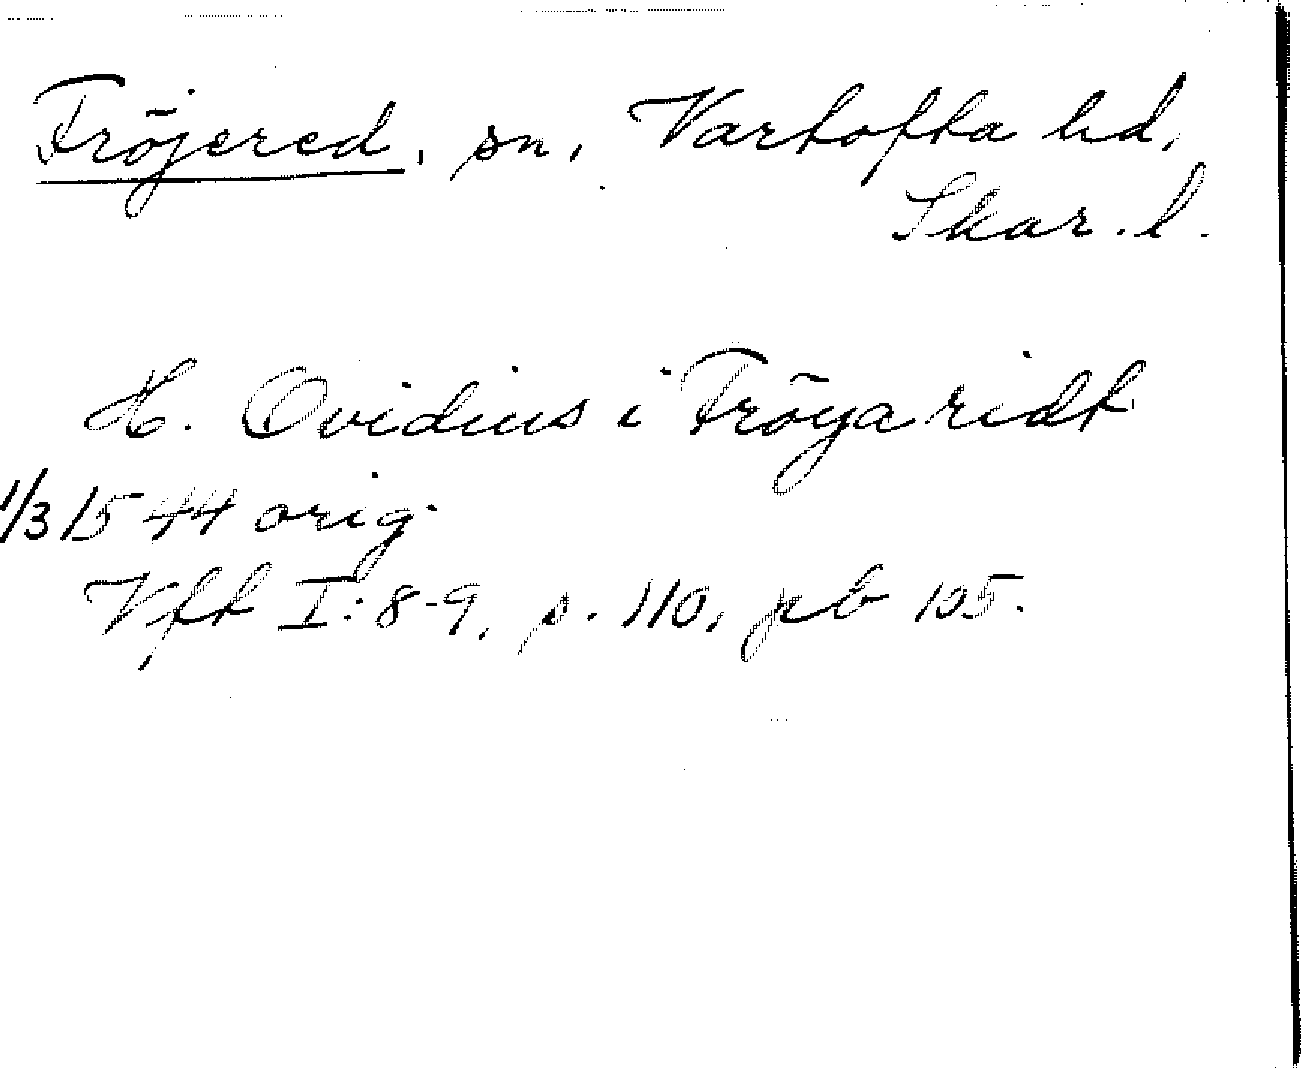 Fröjered, sn, Vartofta hd,
Skar. l.
H. Ovidius i Fröya ridt
1/3 1544 orig.
Vft I: 8-9, s. 110, pb 105.